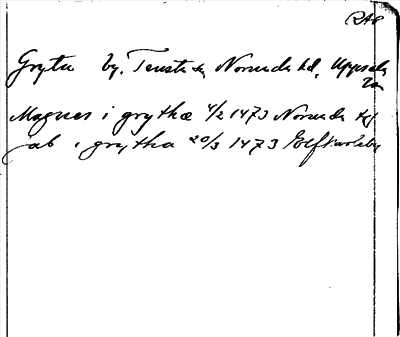 RAP
Gryta by. Tensta sn, Norunda hd, Uppsala
län
Magnus i grytha 4/2 1473 Norunda
ab i grytha 20/3 1473 Elfkarleby